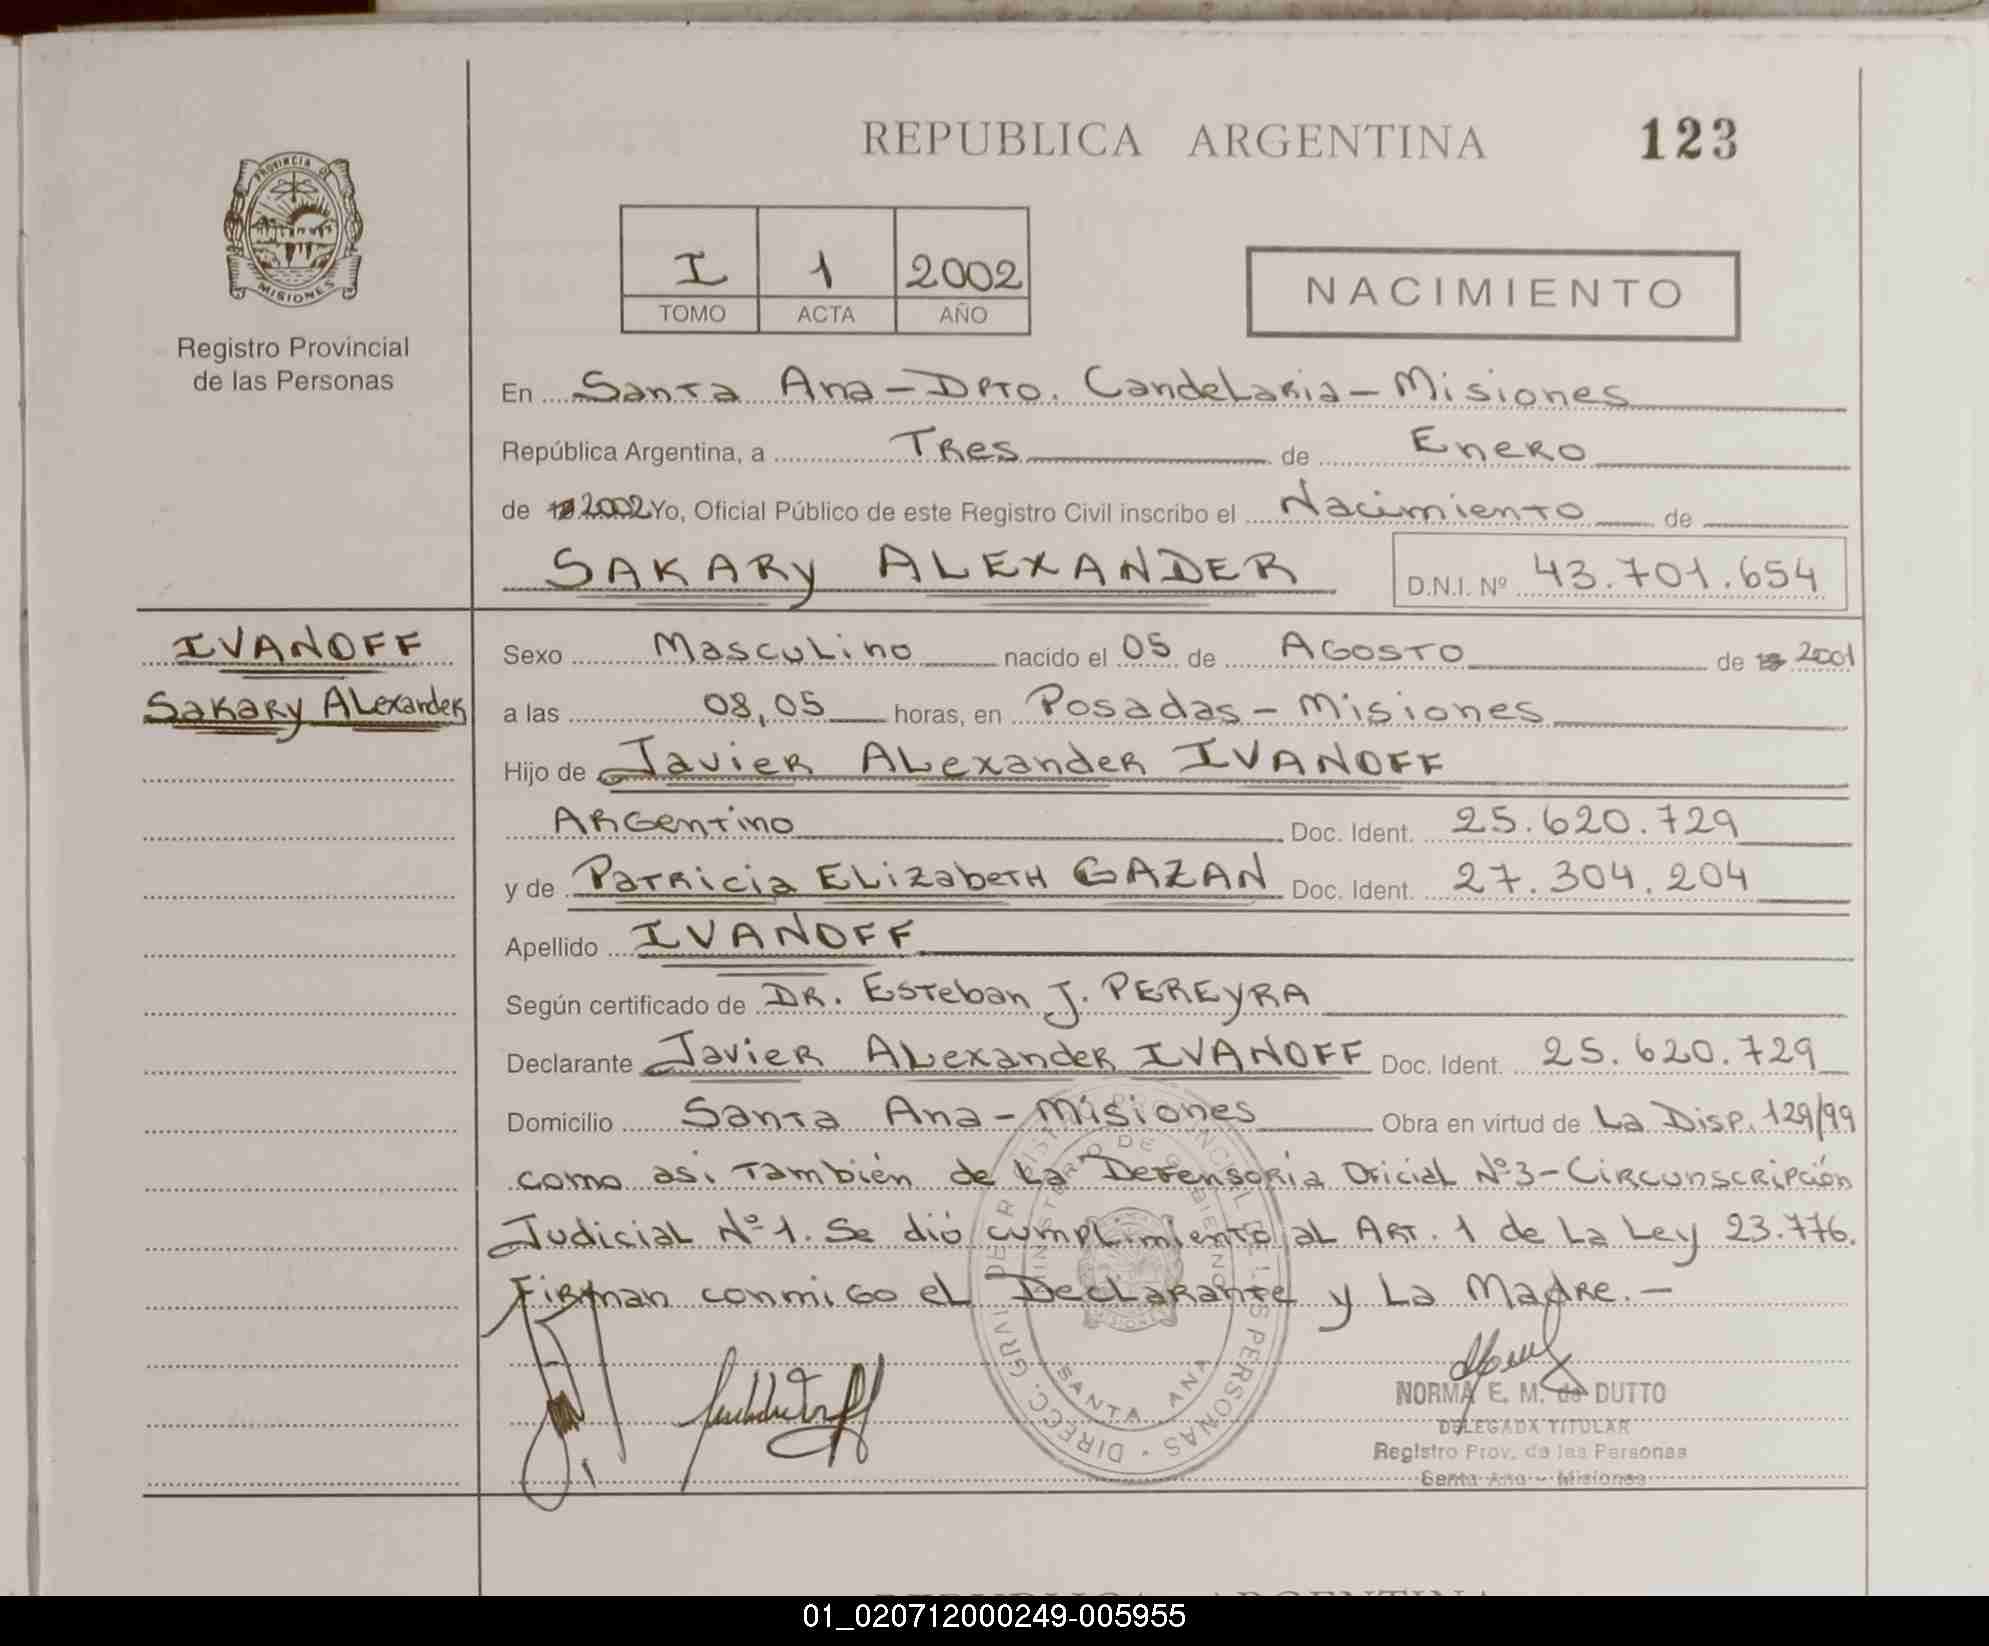 REPUBLICA ARGENTINA 123
PROVINCIA DE
MISIONES
Registro Provincial
de las Personas
I 1 2002
TOMO ACTA AÑO
NACIMIENTO
En Santa Ana - Dpto. Candelaria - Misiones
República Argentina, a Tres de Enero
de 2002 Yo, Oficial Público de este Registro Civil inscribo el Nacimiento de
SAKARY ALEXANDER D.N.I. Nº 43.701.654
IVANOFF
Sakary Alexander
Sexo Masculino nacido el 05 de Agosto de 2001
a las 08,05 horas, en Posadas - Misiones
Hijo de Javier Alexander IVANOFF
Argentino Doc. Ident. 25.620.729
y de Patricia Elizabeth GAZAN Doc. Ident. 27.304.204
Apellido IVANOFF
Según certificado de DR. Esteban J. PEREYRA
Declarante Javier Alexander IVANOFF Doc. Ident. 25.620.729
Domicilio Santa Ana - Misiones Obra en virtud de La Disp. 129/99
como asi también de La Defensoria Oficial Nº3 - Circunscripción
Judicial Nº 1. Se dió cumplimiento al Art. 1 de La Ley 23.776.
Firman conmigo el Declarante y La Madre. -
DIRECC. GRAL. DE REGISTRO PROVINCIAL DE LAS PERSONAS
MINISTERIO DE GOBIERNO
SANTA ANA
NORMA E. M. de DUTTO
DELEGADA TITULAR
Registro Prov. de las Personas
Santa Ana - Misiones
REPUBLICA ARGENTINA
01_020712000249-005955